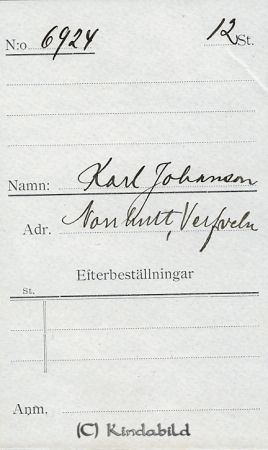 N:o 6924 12 St.
Namn: Karl Johanson
Adr. Norrhult, Verfveln
Efterbeställningar
St.
Anm.
(C) Kindabild